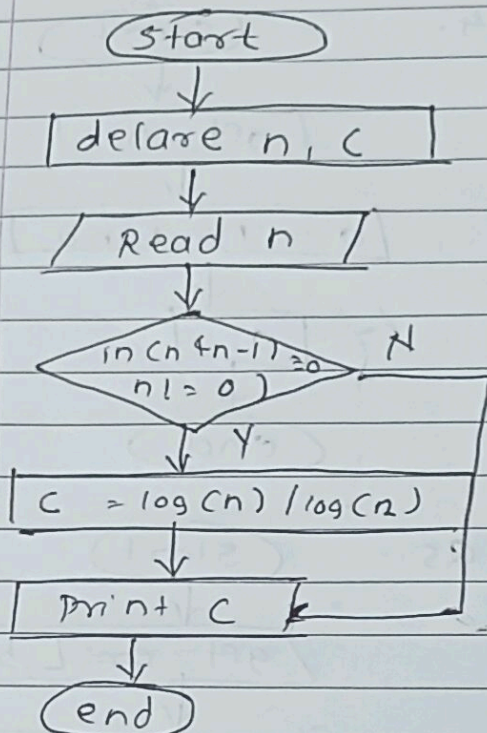 start
delare n, c
Read n
in (n & n-1) = 0
n != 0 )
N
Y
c = log(n) / log(2)
Print c
end